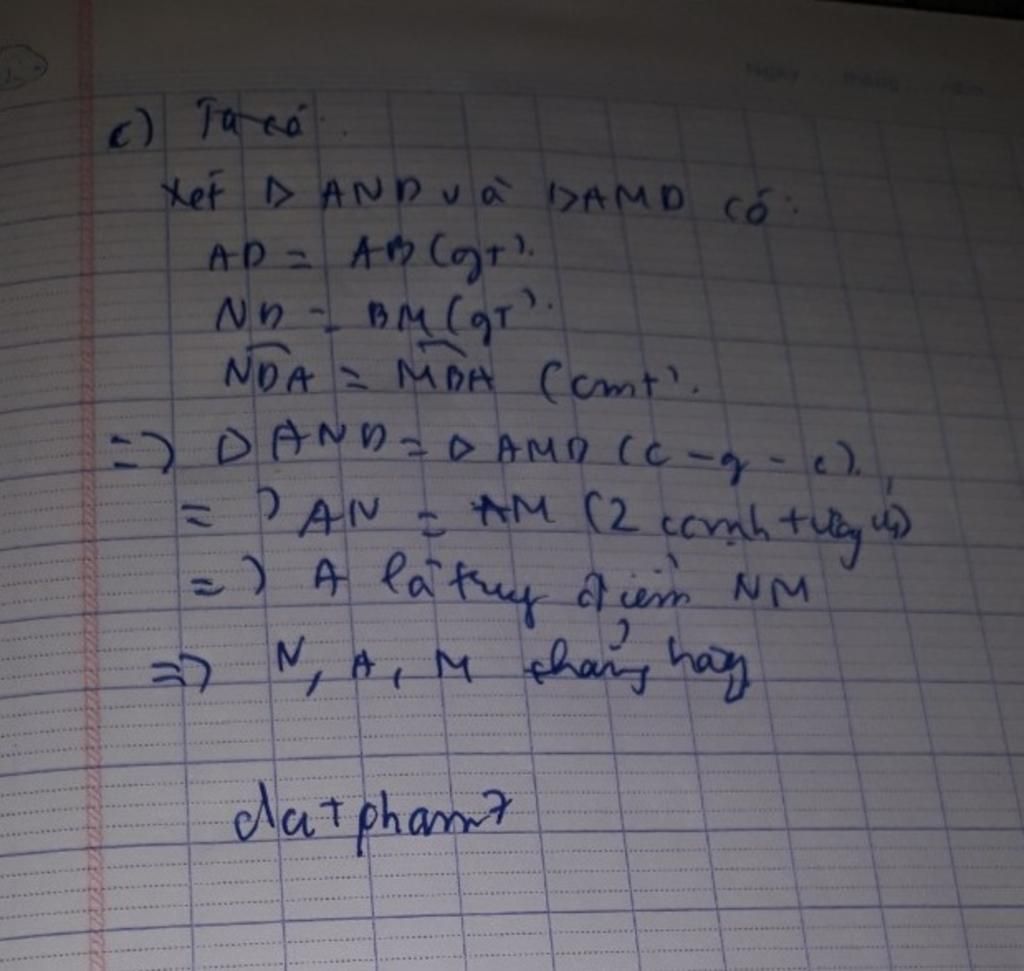 c) Ta có:
Xét Δ AND và Δ AMD có:
AD = AB (gt).
ND = BM (gt).
NDA = MBA (cmt).
=> Δ AND = Δ AMD (c-g-c).
=> AN = AM (2 ccạnh tương ứ)
=> A là trug điểm NM
=> N, A, M thẳng hàng
datpham7